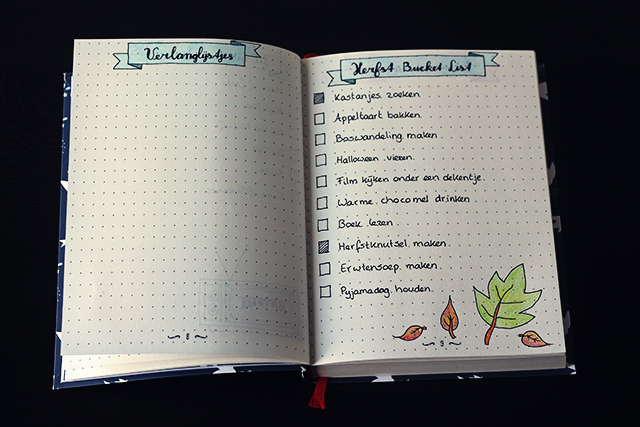 Verlanglijstjes
8
Herfst Bucket List
Kastanjes zoeken
Appeltaart bakken
Boswandeling maken
Halloween vieren
Film kijken onder een dekentje
Warme chocomel drinken
Boek lezen
Herfstknutsel maken
Erwtensoep maken
Pyjamadag houden
9